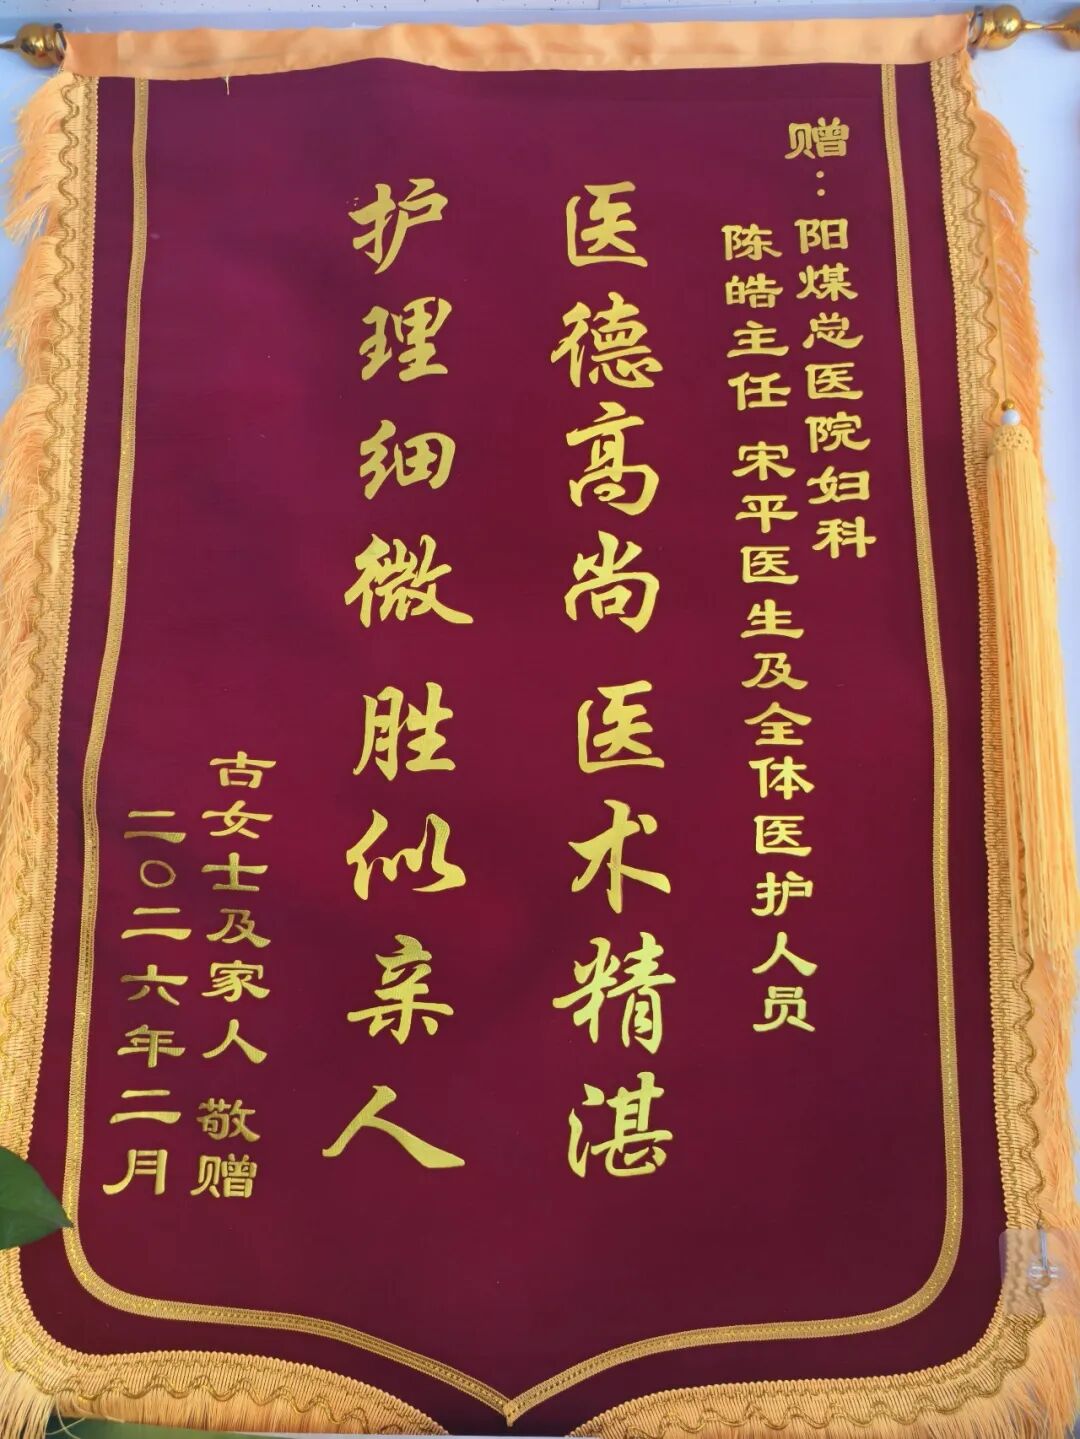 赠：阳煤总医院妇科
陈皓主任 宋平医生及全体医护人员
医德高尚 医术精湛
护理细微 胜似亲人
古女士及家人 敬赠
二〇二六年二月